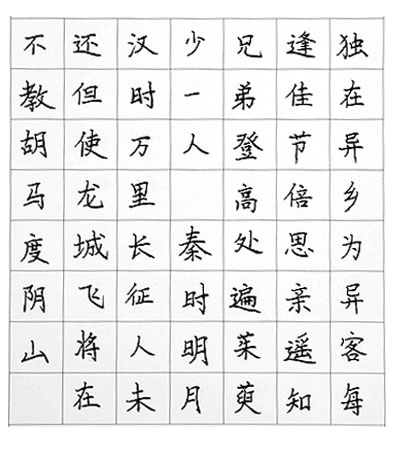 独在异乡为异客每
逢佳节倍思亲遥知
兄弟登高处遍茱萸
少一人 秦时明月
汉时万里长征人未
还但使龙城飞将在
不教胡马度阴山